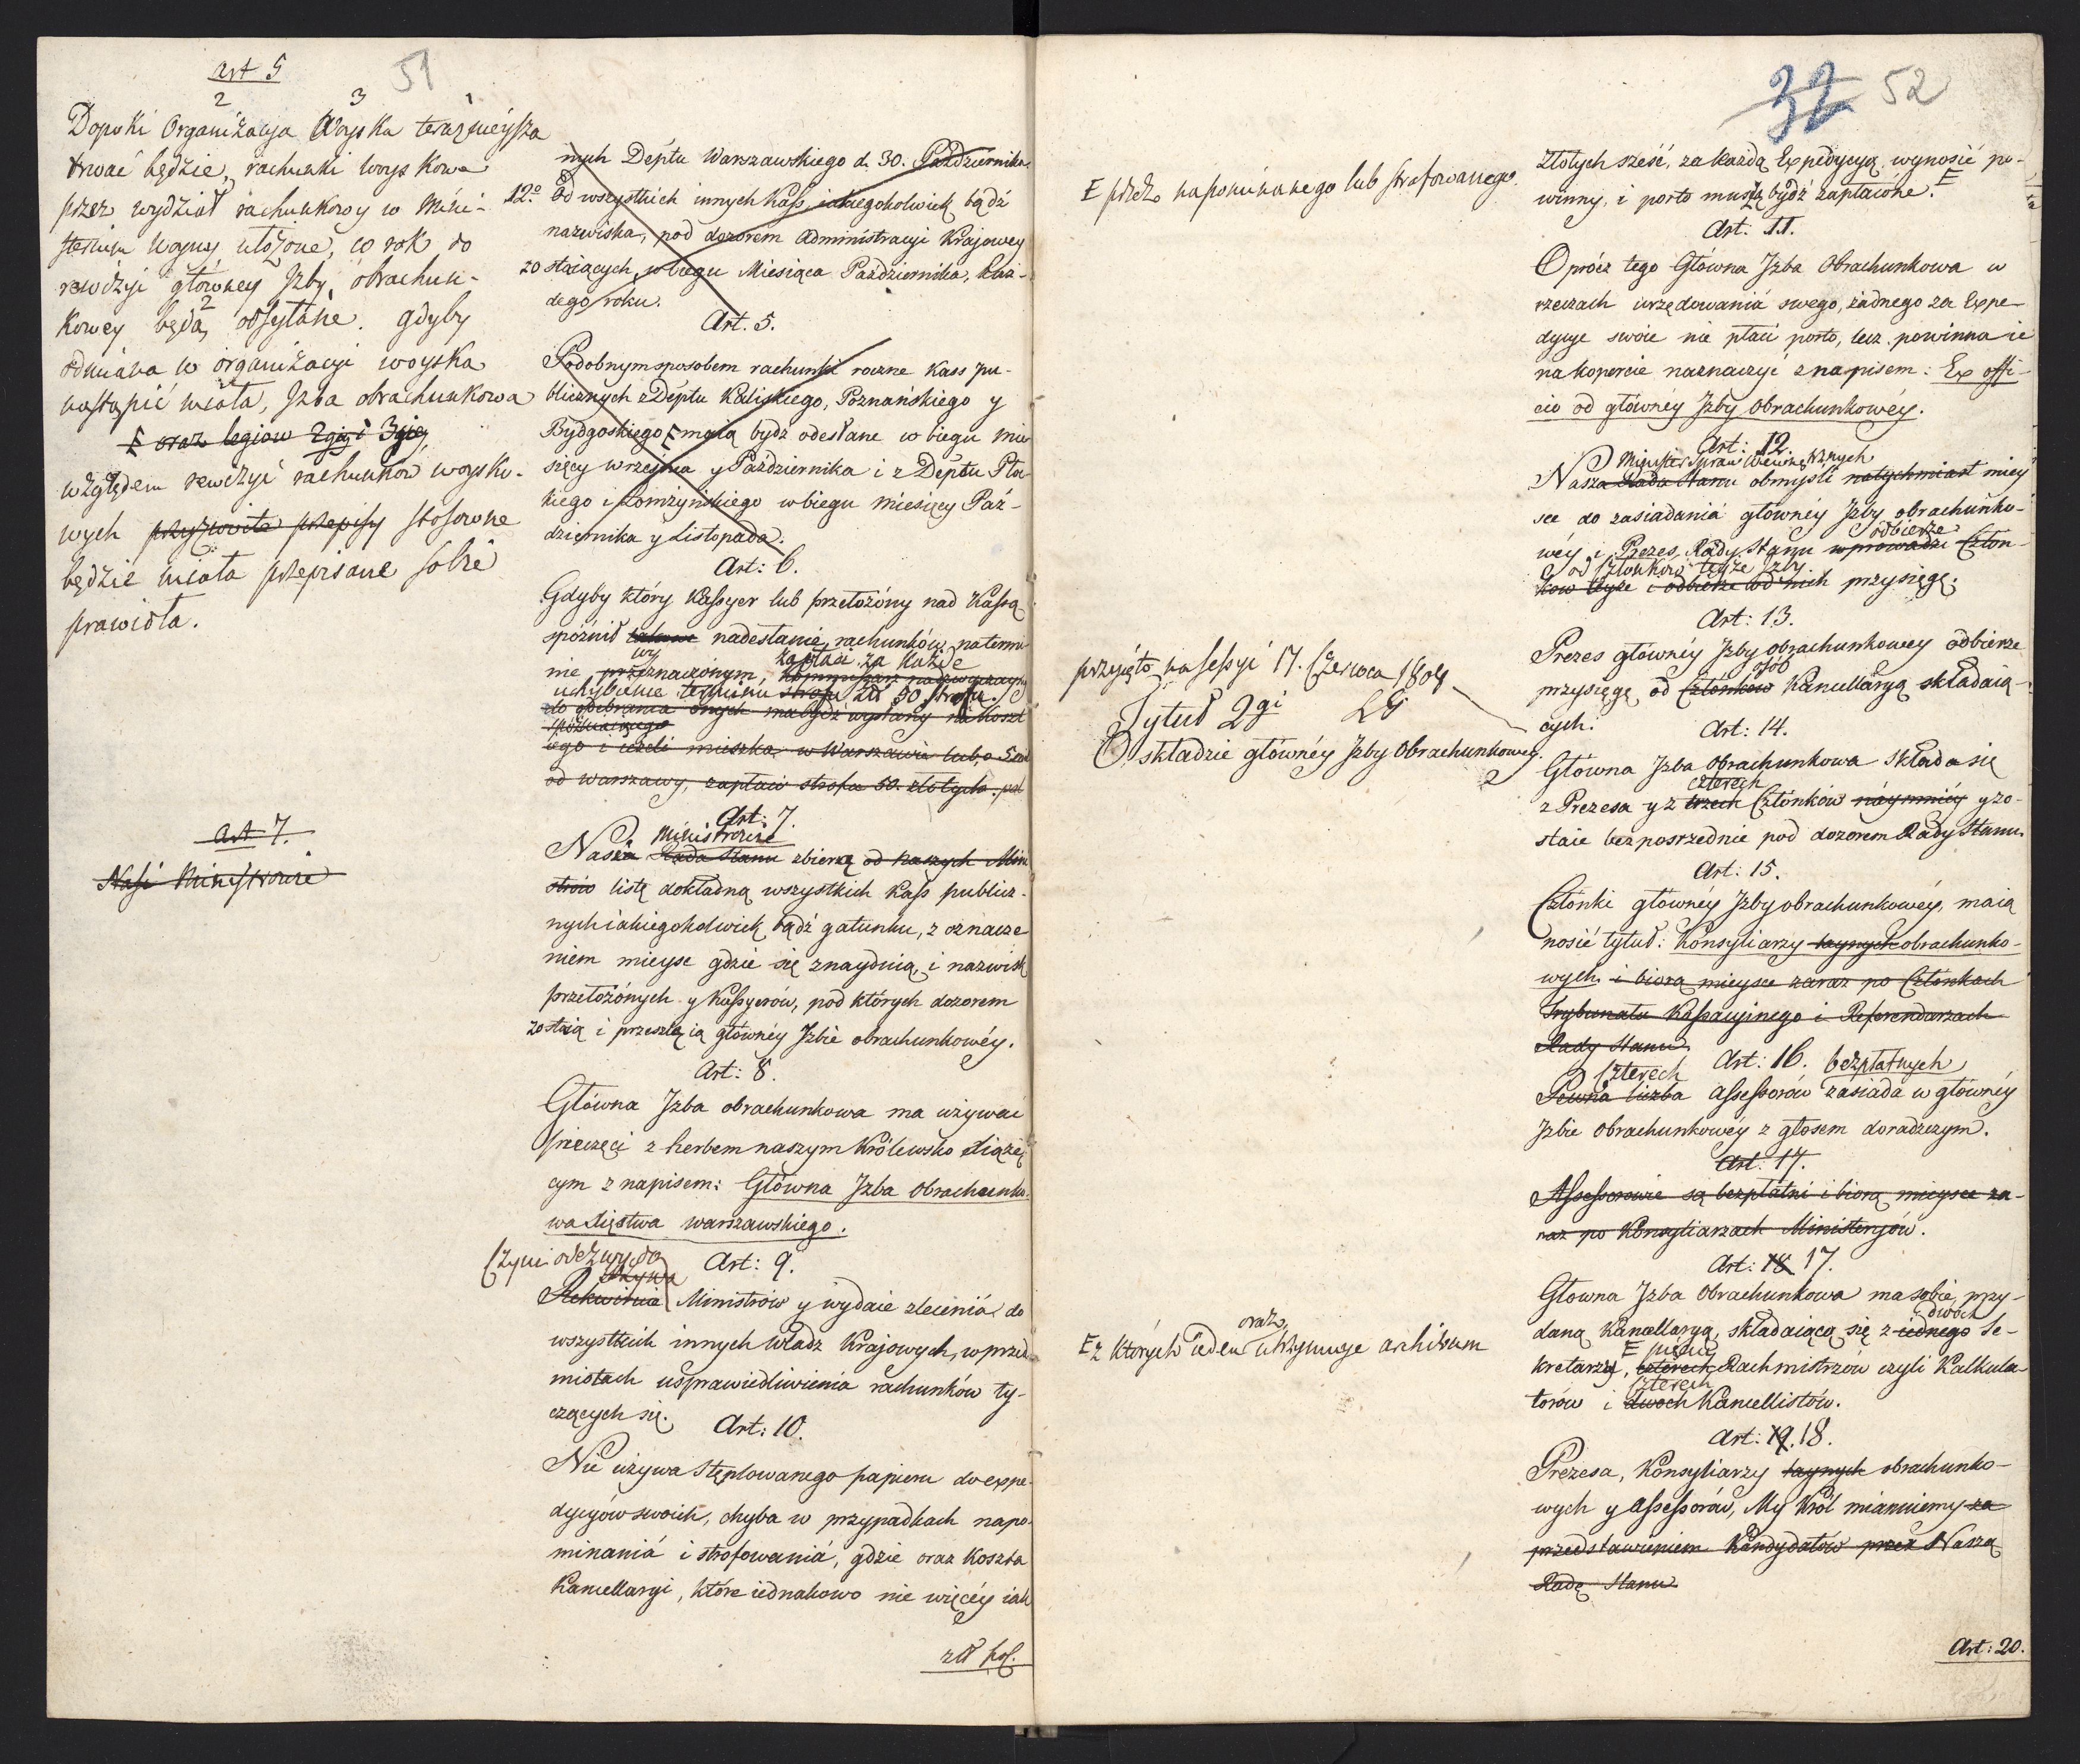 art 5
51
2 3 1
Dopoki Organizacya Woyska teraznieysza
trwać będzie, rachunki woyskowe
przez wydział rachunkowy w Mini-
sterium Woyny ułożone, co rok do
rewizyi główney Izby obrachun-
kowey będą odsyłane. gdyby
odmiana w organizacyi woyska
nastąpić miała, Izba obrachunkowa
E oraz legiow 2giey i 3giey
względem rewizyi rachunków woysko-
wych przyzwoite przepisy stosowne
będzie miała przepisane sobie
prawidła.
art 7.
Nasi Ministrowie
nych Deptu Warszawskiego d. 30. Października
12º Od wszystkich innych Kass, iakiegokolwiek bądź
nazwiska, pod dozorem Administracyi Krajowey
zostaiących, w biegu Miesiąca Października, każ-
dego roku.
Art. 5.
Podobnym sposobem rachunki roczne Kass pu-
blicznych z Deptu Kaliskiego, Poznańskiego y
Bydgoskiego E maią bydź odesłane w biegu mie
sięcy września y Października i z Deptu Pło-
kiego i Łomżyńskiego w biegu miesięcy Paź-
dziernika y Listopada.
Art: 6.
Gdyby który Kassyer lub przełożóny nad Kassą
spóźnił nadesłanie rachunków, na termi-
wy zapłaci za każde
nie przeznaczonym, Kommissarz nadzwyczayny
uchybienie terminu strofu Zł 50 strofu.
do odebrania onych ma bydź wysłany na koszt
spóźniaiącego
iego i ieżeli mieszka w Warszawie lub, o 5 mil
od Warszawy, zapłaci strofu 50. złotych. pol
Art: 7.
Ministrowie
Nasza Rada Stanu zbierą od Naszych Mini
strów listę dokładną wszystkich Kass publicz-
nych iakiegokolwiek bądź gatunku, z oznacze
niem mieysc gdzie się znaydują, i nazwisk
przełożónych y Kassyerów, pod których dozorem
zostaią i przeszlą ią główney Izbie obrachunkowéy.
Art: 8.
Główna Izba obrachunkowa ma używać
pieczęci z herbem naszym Królewsko Xiążę
cym z napisem: Główna Izba Obrachunko-
wa Xięstwa warszawskiego.
Czyni odezwy do
Art: 9.
Rekwiruie Ministrów y wydaie zlecenia do
wszystkich innych Władz Krajowych, w przed
miotach usprawiedliwienia rachunków ty-
czących się.
Art: 10.
Nie używa stęplowanego papieru do expe-
dycyów swoich, chyba w przypadkach napo-
minaniá i strofowaniá, gdzie oraz Koszta
Kancellaryi, które iednakowo nie więcéy iak
zł pol.
32 52
E przez naponinanego lub strafowanego.
złotych sześć, za każdą Expedycyą wynosić po-
winny, i porto muszą bydź zapłacóne. E
Art. 11.
Oprócz tego Główna Izba Obrachunkowa w
rzeczach urzędowaniá swego, żadnego za Expe-
dycye swoie nie płaci porto, lecz powinna ie
na kopercie naznaczyć z napisem: Ex offi-
cio od główney Izby Obrachunkowéy.
Art: 12.
Minister Spraw Wewnętrznych
Nasza Rada Stanu obmyśli natychmiast miey
sce do zasiadania główney Izby obrachunko-
odbierze
wéy i Prezes Rady Stanu wprowadzi Człon-
od Członków teyże Izby
kow teyże i odbierze od nich przysięgę.
Art: 13.
Prezes główney Izby obrachunkowey odbierze
osób
przysięgę od Członków Kancellaryą składaią-
cych.
przyięto na sessyi 17. Czerwca 1808
Tytuł 2gi
O składzie główney Izby Obrachunkowey.
Art: 14.
Główna Izba Obrachunkowa składa się
czterech
z Prezesa y z trzech Członków náymniéy y zo-
staie bezposrzednie pod dozorem Rady Stanu.
Art: 15.
Członki główney Izby obrachunkowéy, maią
nosić tytuł: Konsyliarzy taynych obrachunko-
wych i biorą mieysce zaraz po Członkach
Trybunału Kassacyinego i Referendarzach
Rady Stanu
Art: 16.
Czterech bezpłatnych
Pewna liczba Assessorów zasiada w głównéy
Izbie Obrachunkowéy z głosem doradzczym.
Art: 17.
Assessorowie są bezpłatni i biorą mieysce za-
raz po Konsyliarzach Ministeryów.
Art: 18 17.
Glowna Izba Obrachunkowa ma sobie przy-
dwoch
daną Kancellaryą, składaiącą się z iednego Se-
E z których ieden oraz utrzymuje archiwum
E pięciu
kretarza, czterech Rachmistrzów czyli Kalkula-
czterech
torów i dwoch Kancellistów.
Art: 19. 18.
Prezesa, Konsyliarzy taynych obrachunko-
wych y Assessorów, My Król mianuiemy za
przedstawieniem Kandydatów przez Naszą
Radę Stanu
Art: 20.